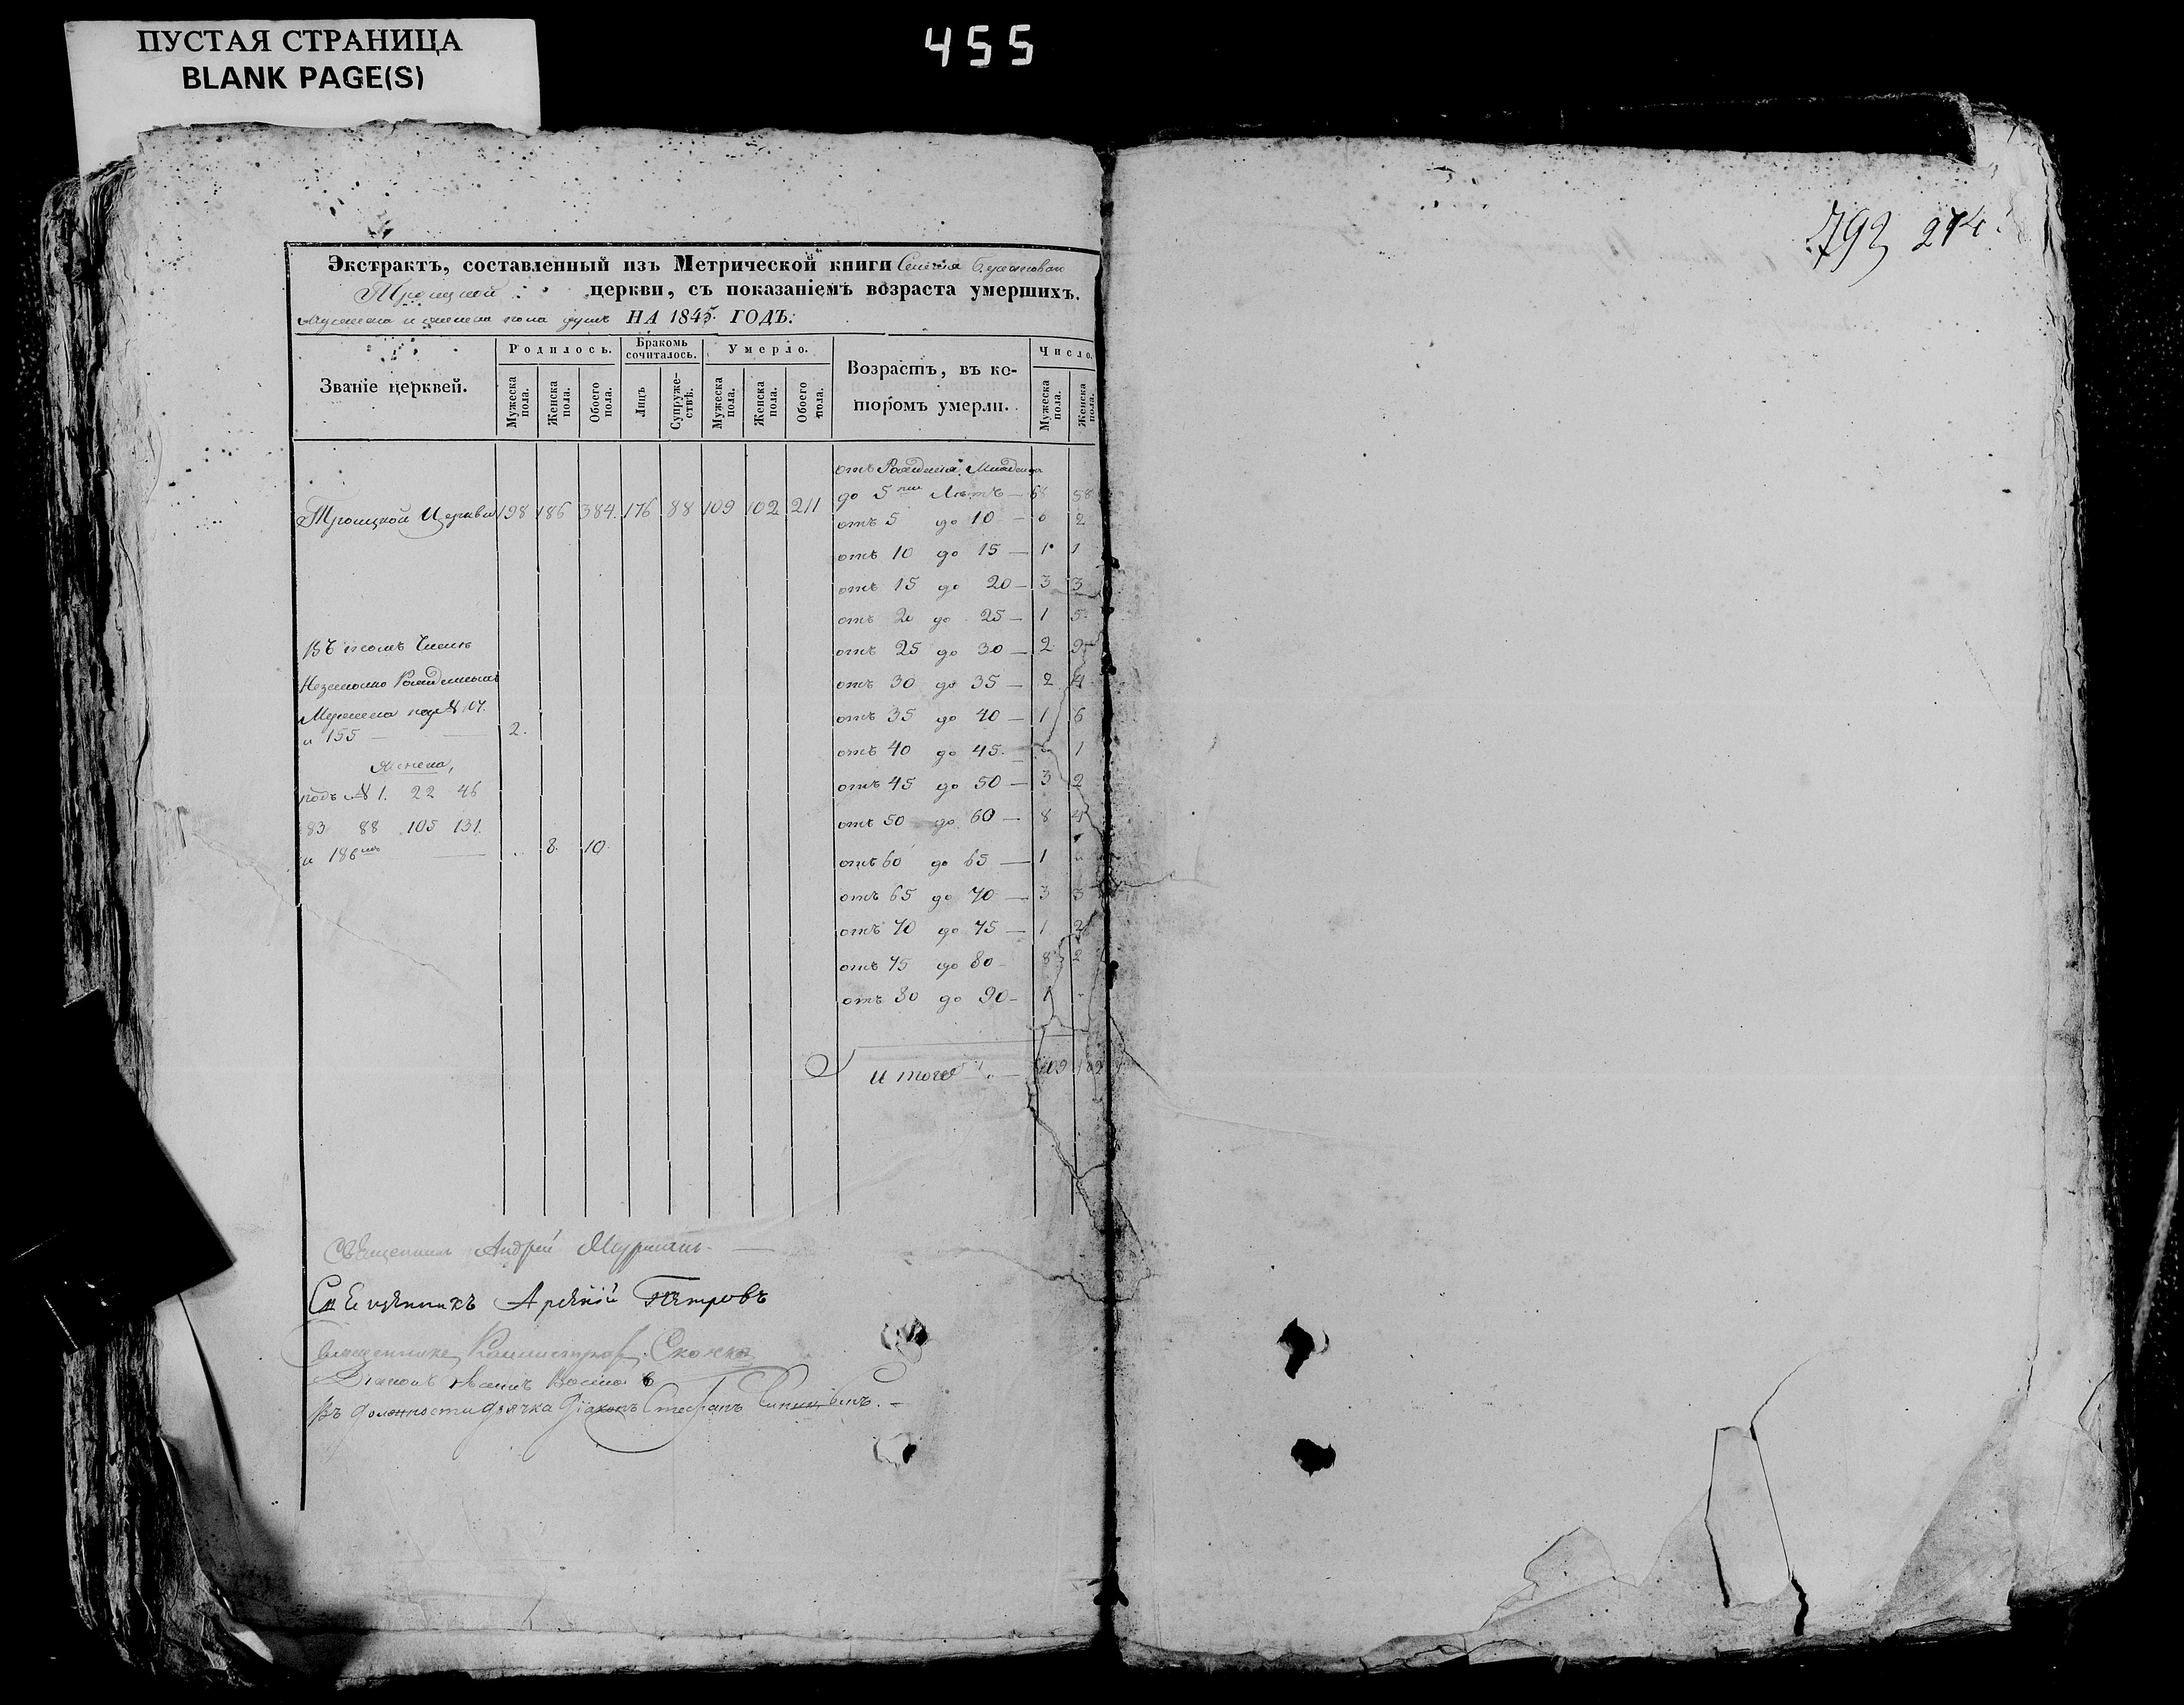 ПУСТАЯ СТРАНИЦА
BLANK PAGE(S)
455
792 274
Экстрактъ, составленный изъ Метрической книги Селенія
Троицкой церкви, съ показаніемъ возраста умершихъ.
Мужеска и женска пола душъ НА 1845 ГОДЪ:
Званіе церквей.
Родилось.
Бракомъ сочиталось.
Умерло.
Возрастъ, въ которомъ умерли.
Число.
Мужеска пола.
Женска пола.
Обоего пола.
Лицъ
Супружествъ.
Мужеска пола.
Женска пола.
Обоего пола.
Мужеска пола.
Женска пола.
отъ Рожденія Младенца
до 5ти Лѣтъ — 68 58
Троицкой Церкви 198 186 384 176 88 109 102 211
отъ 5 до 10 — 0 2
отъ 10 до 15 — 1 1
отъ 15 до 20 — 3 3
отъ 20 до 25 — 1 5
Въ томъ Числѣ
отъ 25 до 30 — 2 9
Незаконно Рожденныхъ
отъ 30 до 35 — 2 4
Мужеска под № 107.
отъ 35 до 40 — 1 6
и 155 — 2.
отъ 40 до 45 1
Женска,
отъ 45 до 50 — 3 2
подъ № 1. 22 46
83 88 105 131.
отъ 50 до 60 — 8 4
и 186 — 8. 10.
отъ 60 до 65 — 1
отъ 65 до 70 — 3 3
отъ 70 до 75 — 1 2
отъ 75 до 80 — 8 2
отъ 80 до 90 — 1 -
Итого — 109 102
Священникъ Андрей
Священникъ Арсеній Петровъ
Священникъ Каллистрат
Діаконъ Иванъ
Въ должности дьячка Діаконъ Стефанъ